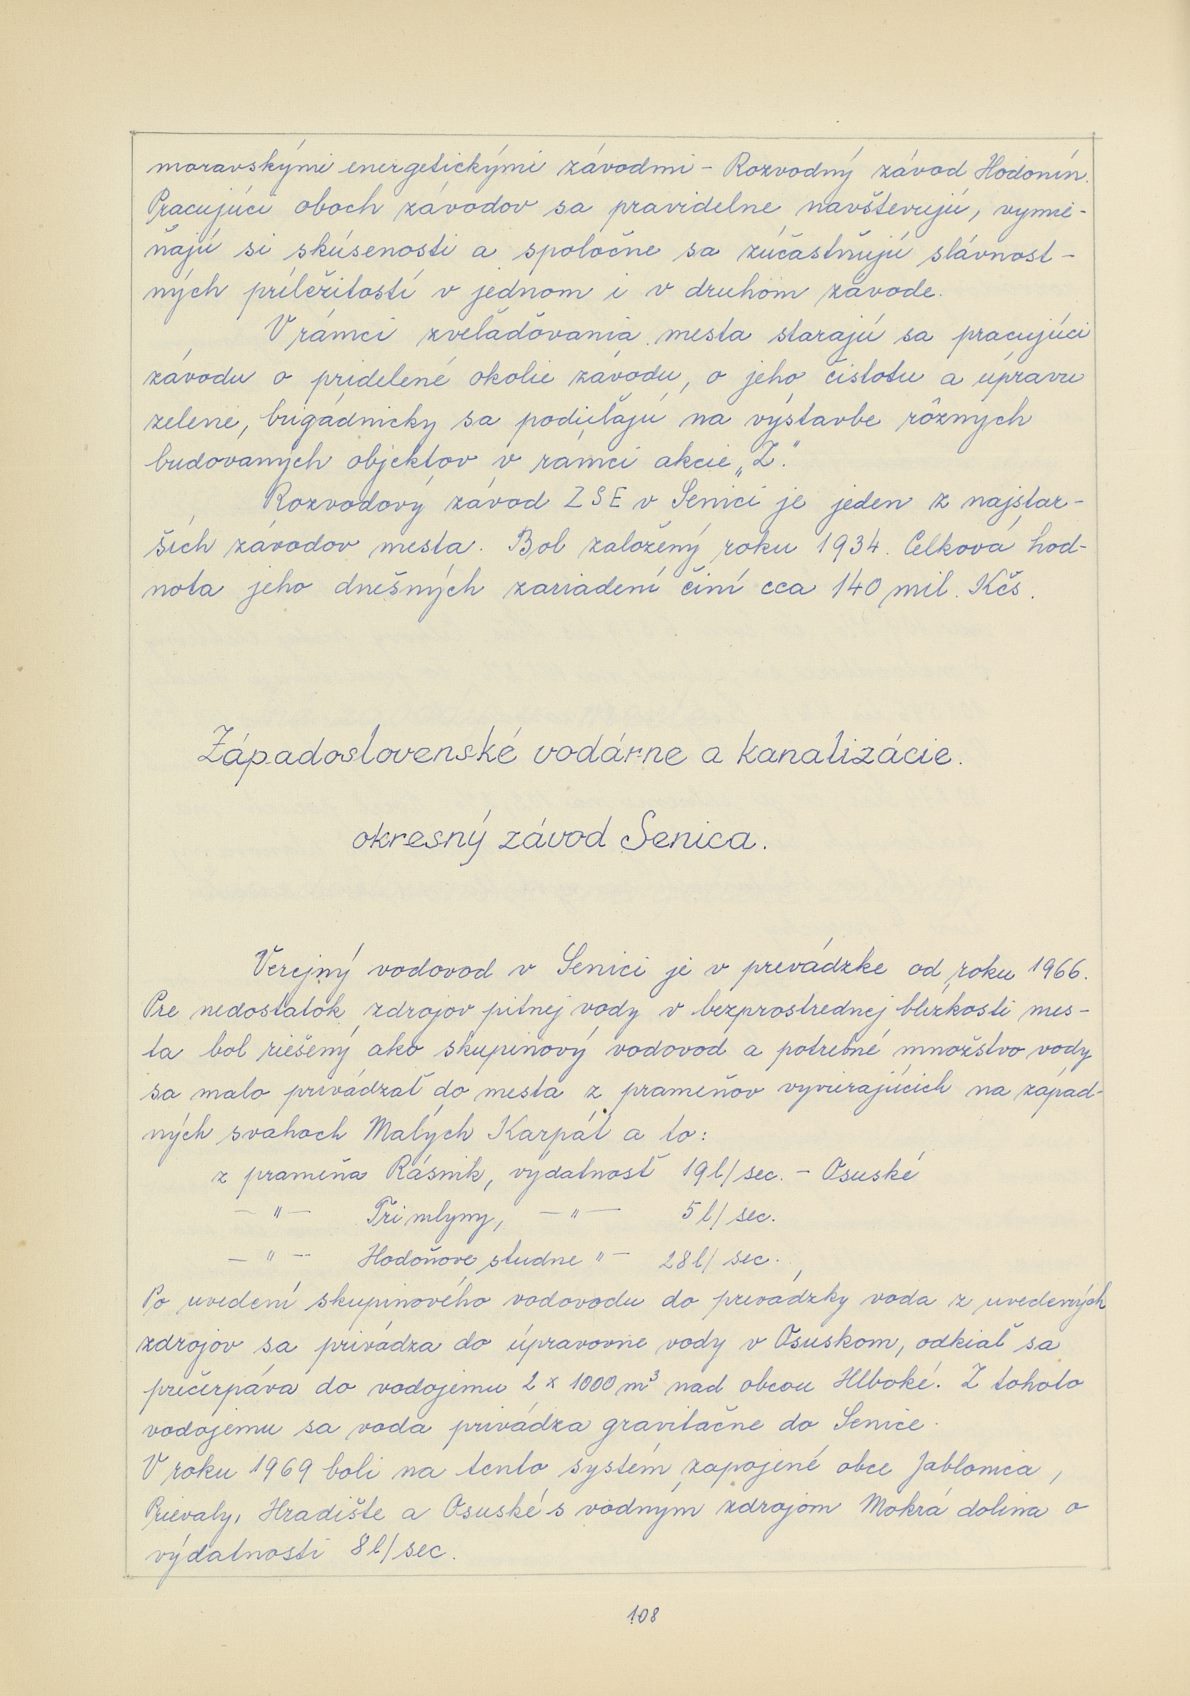 moravskými energetickými závodmi - Rozvodný závod Hodonín.
Pracujúci oboch závodov sa pravidelne navštevujú, vymie-
ňajú si skúsenosti a spoločne sa zúčastňujú slávnost-
ných príležitostí v jednom i v druhom závode.
V rámci zveľaďovania mesta starajú sa pracujúci
závodu o pridelené okolie závodu, o jeho čistotu a úpravu
zelene, brigádnicky sa podieľajú na výstavbe rôznych
budovaných objektov v rámci akcie „Z."
Rozvodový závod ZSE v Senici je jeden z najstar-
ších závodov mesta. Bol založený roku 1934. Celková hod-
nota jeho dnešných zariadení činí cca 140 mil. Kčs.
Západoslovenské vodárne a kanalizácie.
okresný závod Senica.
Verejný vodovod v Senici je v prevádzke od roku 1966.
Pre nedostatok zdrojov pitnej vody v bezprostrednej blízkosti mes-
ta bol riešený ako skupinový vodovod a potrebné množstvo vody
sa malo privádzať do mesta z prameňov vyvierajúcich na západ-
ných svahoch Malých Karpát a to:
z prameňa Rásnik, výdatnosť 19 l/sec. - Osuské
- " - Tri mlyny, - " - 5 l/sec.
- " - Hodoňove studne " - 28 l/sec.
Po uvedení skupinového vodovodu do prevádzky voda z uvedených
zdrojov sa privádza do úpravovne vody v Osuskom, odkiaľ sa
prečerpáva do vodojemu 2 x 1000 m³ nad obcou Hlboké. Z tohoto
vodojemu sa voda privádza gravitačne do Senice.
V roku 1969 boli na tento systém zapojené obce Jablonica,
Prievaly, Hradište a Osuské s vodným zdrojom Mokrá dolina o
výdatnosti 8 l/sec.
108